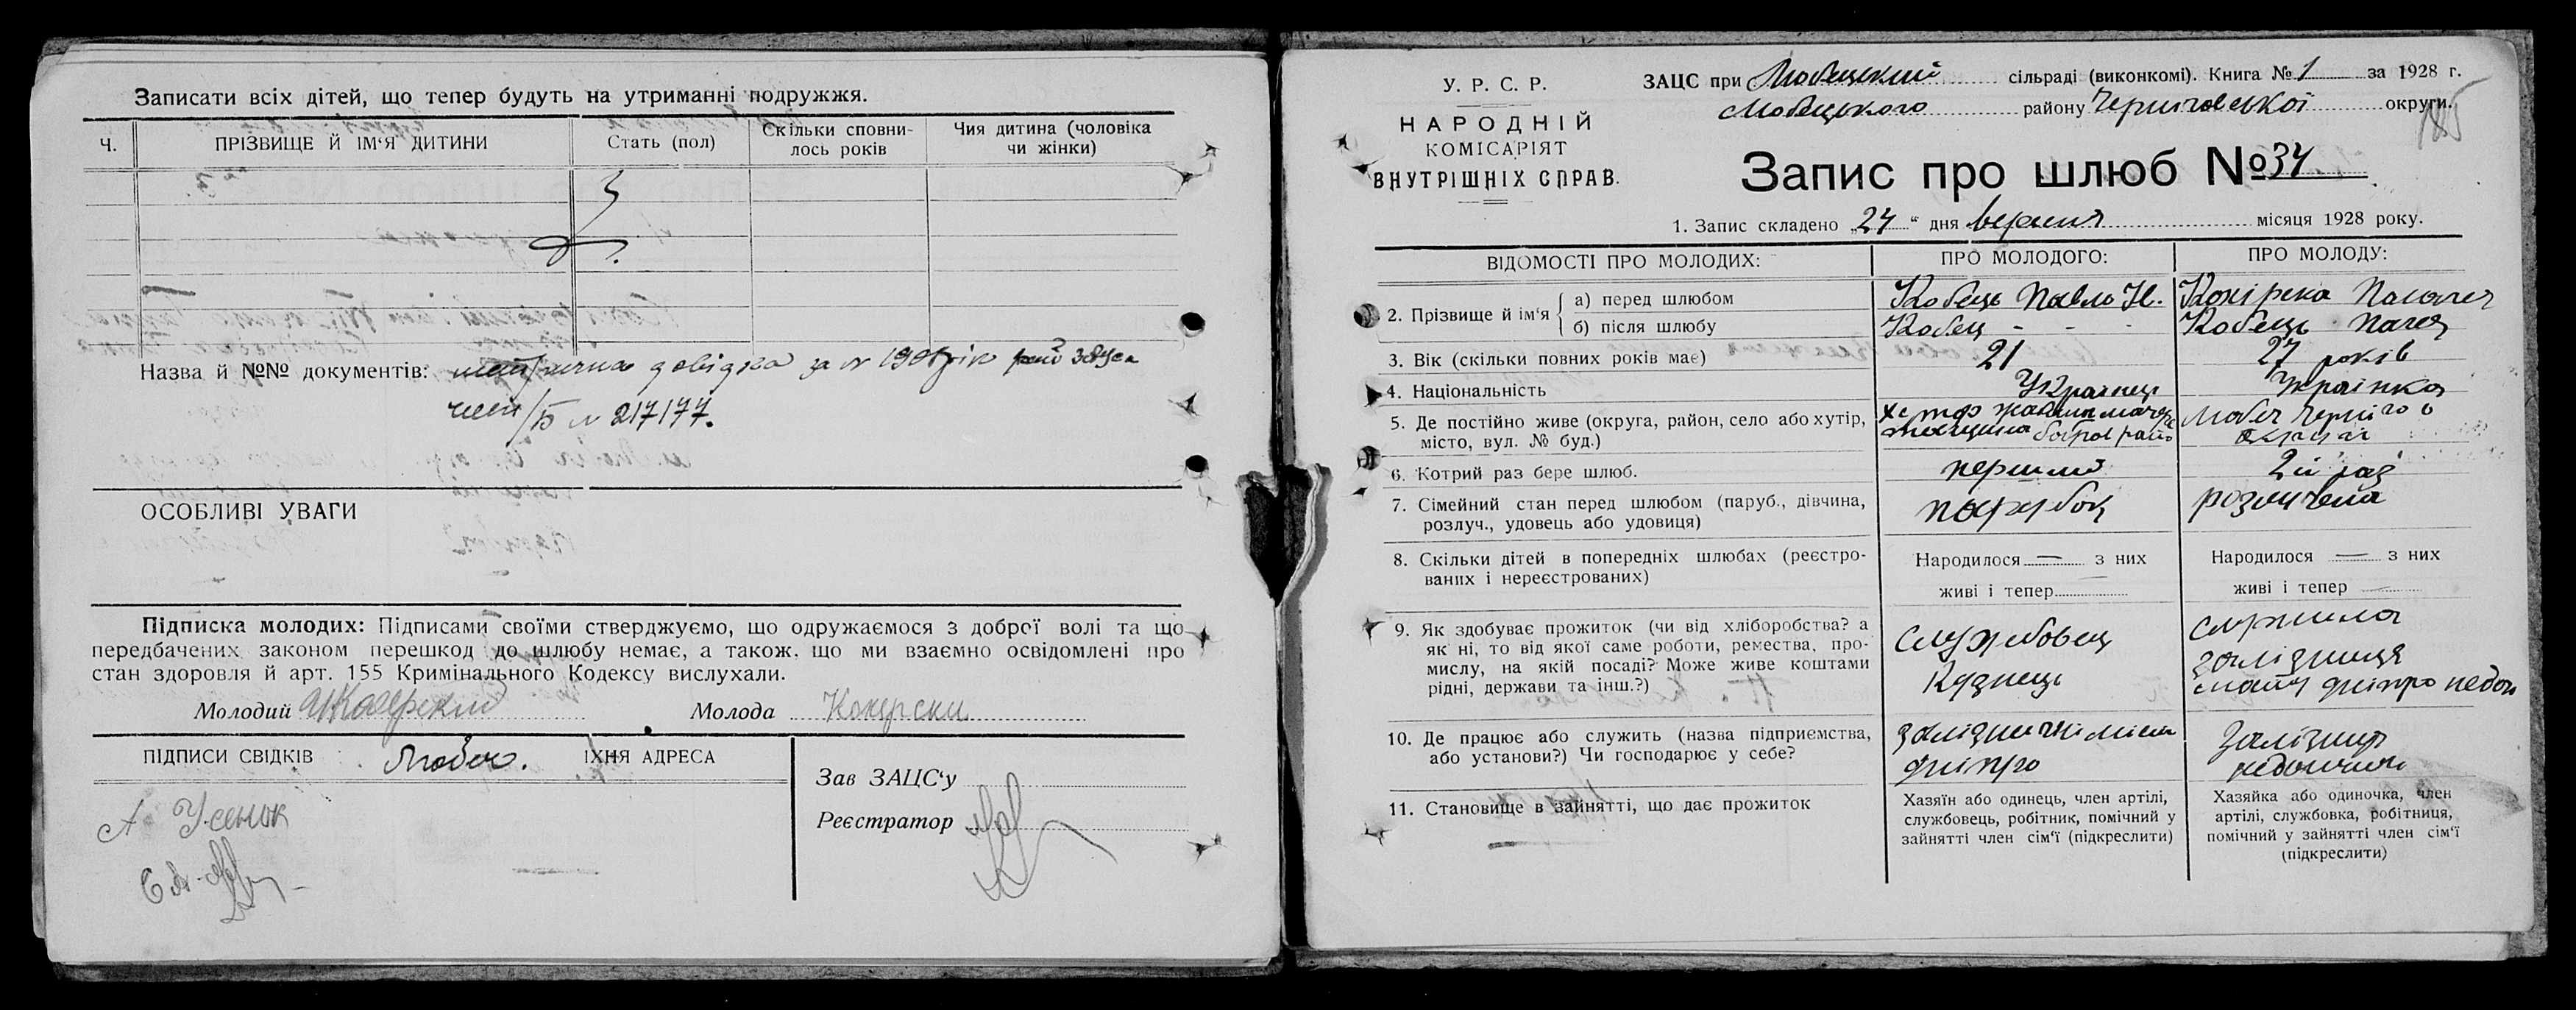 Записати всіх дітей, що тепер будуть на утриманні подружжя.
Ч.
ПРІЗВИЩЕ Й ІМ‘Я ДИТИНИ
Стать (пол)
Скільки сповни-
лось років
Чия дитина (чоловіка
чи жінки)
Назва й №№ документів: довідка за №
217177.
ОСОБЛИВІ УВАГИ
Підписка молодих: Підписами своїми стверджуємо, що одружаємося з доброї волі та що
передбачених законом перешкод до шлюбу немає, а також, що ми взаємно освідомлені про
стан здоров‘я й арт. 155 Кримінального Кодексу вислухали.
Молодий
Молода
ПІДПИСИ СВІДКІВ Любеч. ЇХНЯ АДРЕСА
А Усенок
Зав ЗАЦС‘у
Реєстратор
У. Р. С. Р.
НАРОДНІЙ
КОМІСАРІЯТ
ВНУТРІШНІХ СПРАВ.
ЗАЦС при Любецький сільраді (виконкомі). Книга № 1 за 1928 г.
Любецького району Чернігівської округи.
185
Запис про шлюб № 34
1. Запис складено „24“ дня вересня місяця 1928 року.
ВІДОМОСТІ ПРО МОЛОДИХ:
ПРО МОЛОДОГО:
ПРО МОЛОДУ:
2. Прізвище й ім‘я
а) перед шлюбом
Кобець Павло
б) після шлюбу
Кобец - - -
Кобець
3. Вік (скільки повних років має)
21
27 років
4. Національність
Українець
Українка
5. Де постійно живе (округа, район, село або хутір,
місто, вул. № буд.)
Любеч
6. Котрий раз бере шлюб.
перший
2й раз
7. Сімейний стан перед шлюбом (паруб., дівчина,
розлуч., удовець або удовиця)
парубок
розлучена
8. Скільки дітей в попередніх шлюбах (реєстро-
ваних і нереєстрованих)
Народилося — з них
живі і тепер
Народилося — з них
живі і тепер —
9. Як здобуває прожиток (чи від хліборобства? а
як ні, то від якої саме роботи, ремества, про-
мислу, на якій посаді? Може живе коштами
рідні, держави та інш.?)
службовец
Кузнець
служила
залізниця
10. Де працює або служить (назва підприємства,
або установи?) Чи господарює у себе?
Дніпро
11. Становище в зайнятті, що дає прожиток
Хазяїн або одинець, член артілі,
службовець, робітник, помічний у
зайнятті член сім‘ї (підкреслити)
Хазяйка або одиночка, член
артілі, службовка, робітниця,
помічний у зайнятті член сім‘ї
(підкреслити)